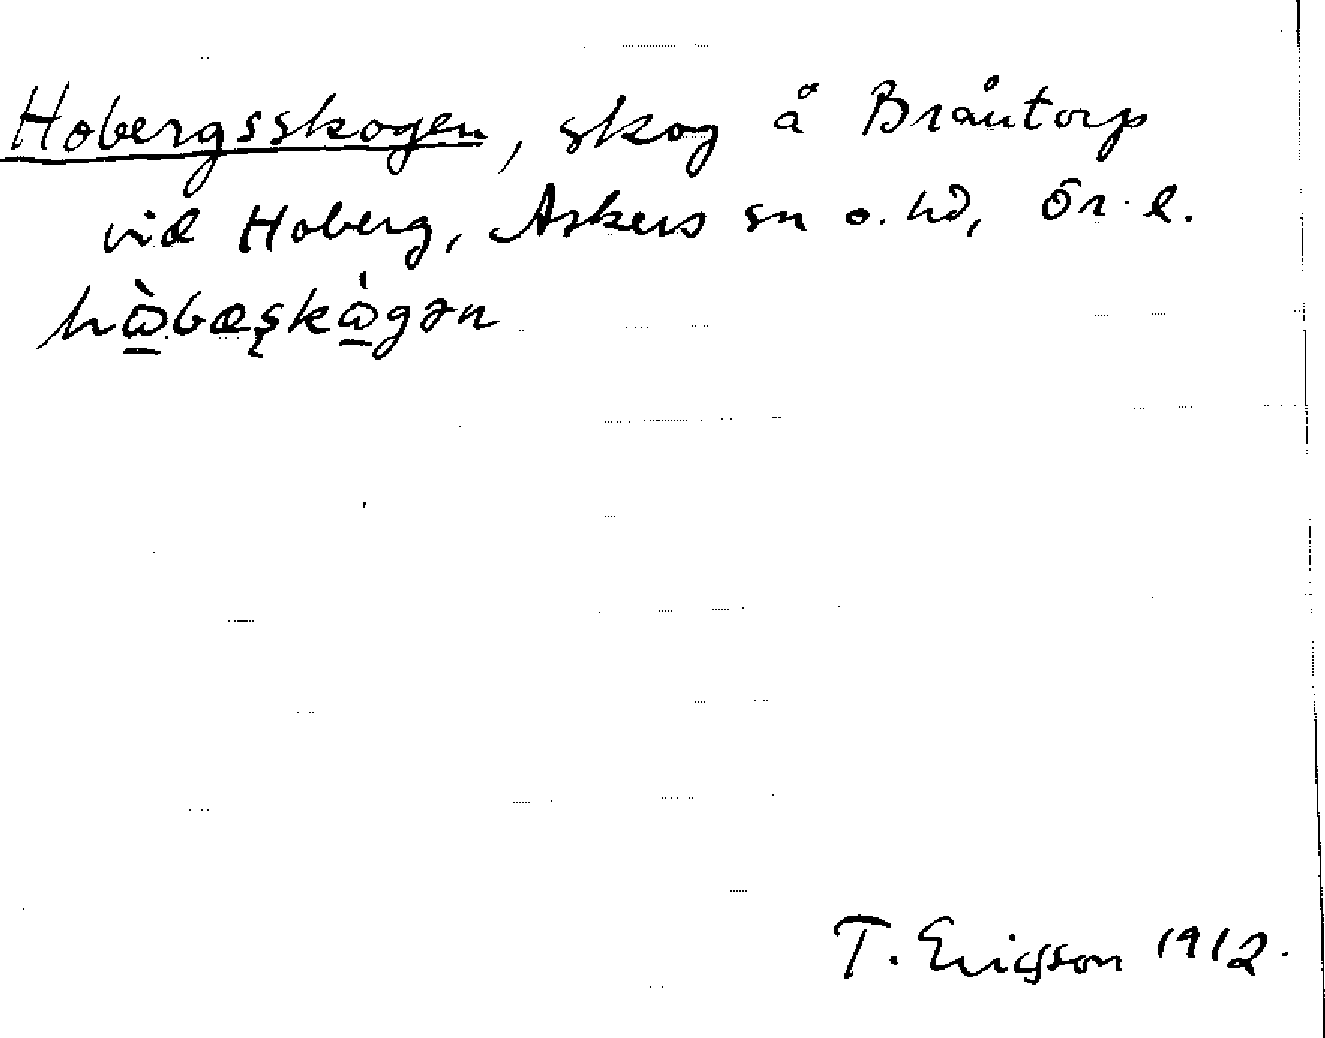 Hobergsskogen, skog å Bråntorp
vid Hoberg, Askers sn o. hd, Ör. l.
hὼ̲bæşkὼ̲gən
T. Ericsson 1912.